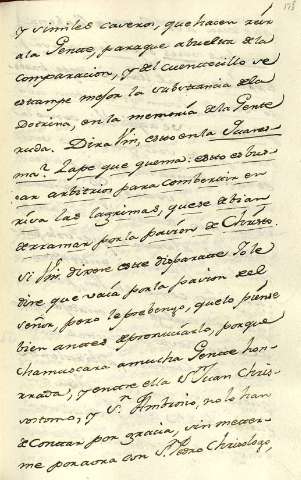 175
y similes caseros, que hacen reir
a la Gente, para que a buelta de la
comparacion, y del cuentecillo se
estampe mejor la substancia de la
Doctrina, en la memoria de la Gente
ruda. Dirà Vm, esto en la Quares-
ma? Zape que quema: esto es bus-
car arbitrios para combertir en
risa las lagrimas, que se debian
derramar por la pasion de Christo.
Si Vm. dixere este disparate Yo le
dire que vaia por la pasion de el
Señor, pero le prebengo, que lo piense
bien antes de pronunciarlo, porque
chamuscara a mucha Gente hon-
rrada, y entre ella Sn. Juan Chris-
ostomo, y Sn. Ambrosio, no lo han
de contar por gracia, sin meter-
me por aora con Sn. Pedro Chrisologo,